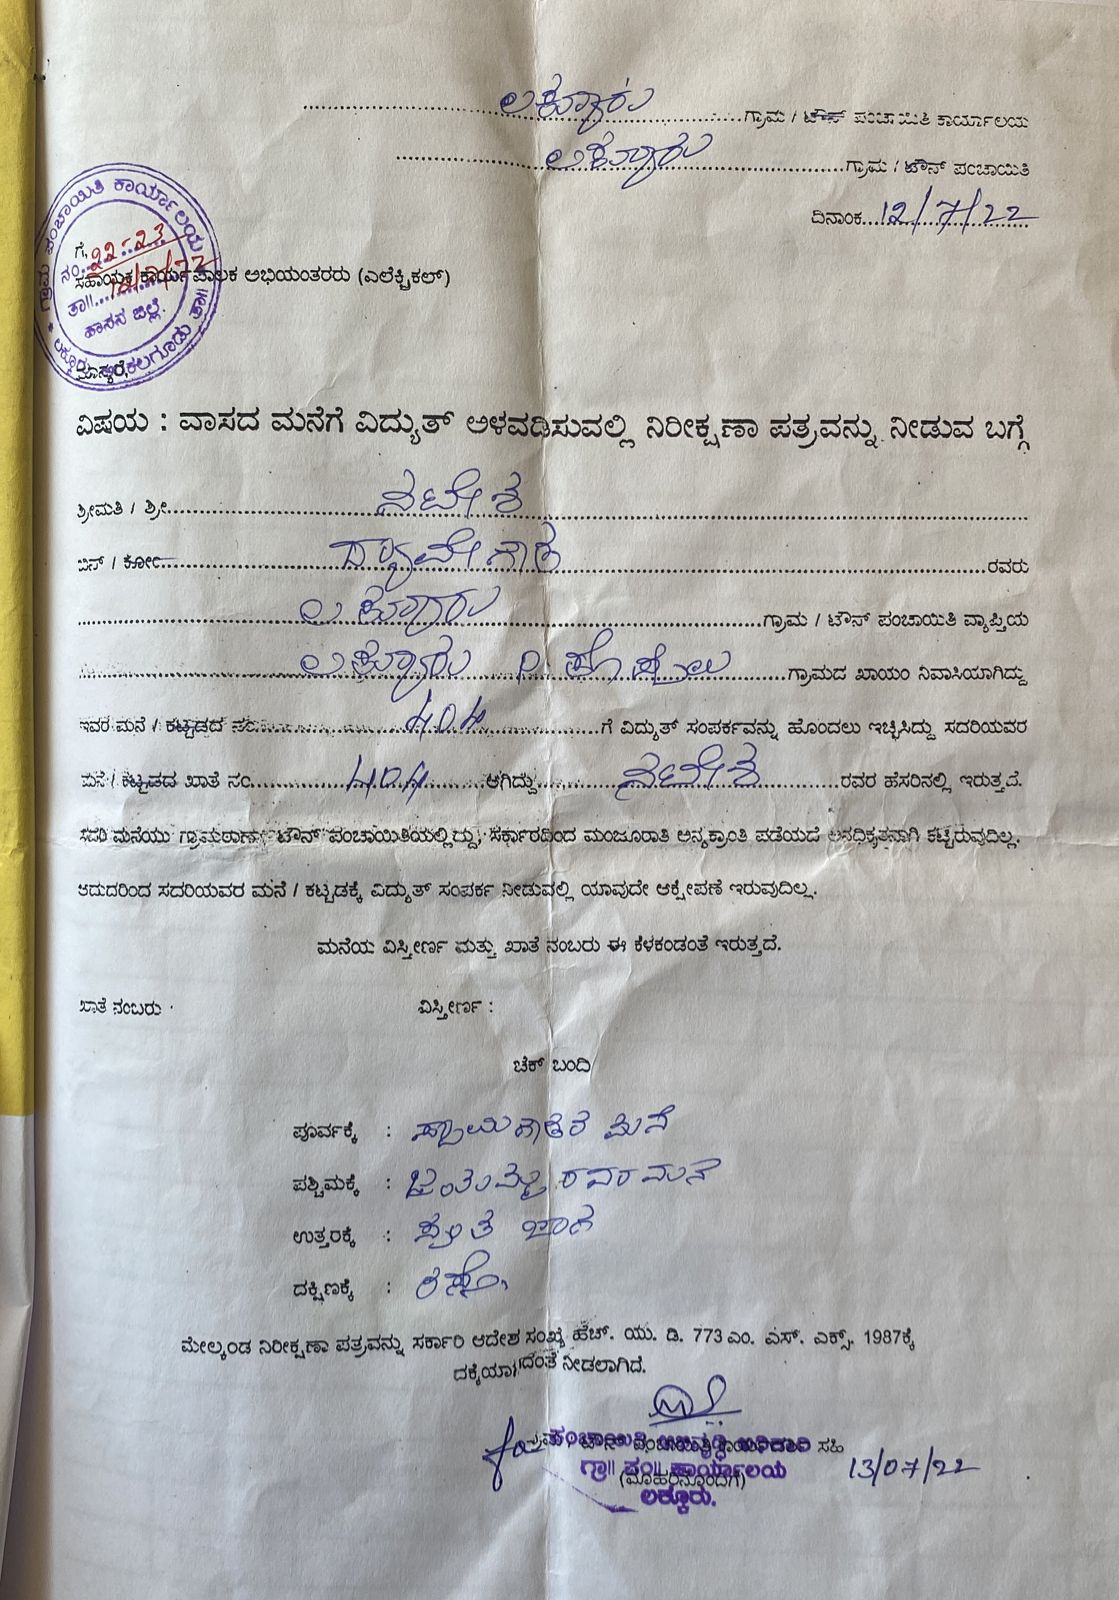 ಲಕ್ಕೂರು ಗ್ರಾಮ / ಟೌನ್ ಪಂಚಾಯಿತಿ ಕಾರ್ಯಾಲಯ
ಲಕ್ಕೂರು ಗ್ರಾಮ / ಟೌನ್ ಪಂಚಾಯಿತಿ
ದಿನಾಂಕ 12/7/22
ಗ್ರಾಮ ಪಂಚಾಯಿತಿ ಕಾರ್ಯಾಲಯ
ನಂ. 22-23
ತಾ||
ಹಾಸನ ಜಿಲ್ಲೆ.
ಗೆ,
ಸಹಾಯಕ ಕಾರ್ಯಪಾಲಕ ಅಭಿಯಂತರರು (ಎಲೆಕ್ಟ್ರಿಕಲ್)
ಮಾನ್ಯರೆ,
ವಿಷಯ : ವಾಸದ ಮನೆಗೆ ವಿದ್ಯುತ್ ಅಳವಡಿಸುವಲ್ಲಿ ನಿರೀಕ್ಷಣಾ ಪತ್ರವನ್ನು ನೀಡುವ ಬಗ್ಗೆ
ಶ್ರೀಮತಿ / ಶ್ರೀ ನಟೇಶ
ಬಿನ್ / ಕೋಂ ದ್ಯಾವೇಗೌಡ ರವರು
ಲಕ್ಕೂರು ಗ್ರಾಮ / ಟೌನ್ ಪಂಚಾಯಿತಿ ವ್ಯಾಪ್ತಿಯ
ಲಕ್ಕೂರು ಗ್ರಾಮದ ಖಾಯಂ ನಿವಾಸಿಯಾಗಿದ್ದು
ಇವರ ಮನೆ / ಕಟ್ಟಡದ ನಂ. 404 ಗೆ ವಿದ್ಯುತ್ ಸಂಪರ್ಕವನ್ನು ಹೊಂದಲು ಇಚ್ಛಿಸಿದ್ದು ಸದರಿಯವರ
ಮನೆ / ಕಟ್ಟಡದ ಖಾತೆ ನಂ. 404 ಆಗಿದ್ದು ನಟೇಶ ರವರ ಹೆಸರಿನಲ್ಲಿ ಇರುತ್ತದೆ.
ಸದರಿ ಮನೆಯು ಗ್ರಾಮಠಾಣಾ / ಟೌನ್ ಪಂಚಾಯಿತಿಯಲ್ಲಿದ್ದು, ಸರ್ಕಾರದಿಂದ ಮಂಜೂರಾತಿ ಅನ್ಯಕ್ರಾಂತಿ ಪಡೆಯದೆ ಅನಧಿಕೃತವಾಗಿ ಕಟ್ಟಿರುವುದಿಲ್ಲ.
ಆದುದರಿಂದ ಸದರಿಯವರ ಮನೆ / ಕಟ್ಟಡಕ್ಕೆ ವಿದ್ಯುತ್ ಸಂಪರ್ಕ ನೀಡುವಲ್ಲಿ ಯಾವುದೇ ಆಕ್ಷೇಪಣೆ ಇರುವುದಿಲ್ಲ.
ಮನೆಯ ವಿಸ್ತೀರ್ಣ ಮತ್ತು ಖಾತೆ ನಂಬರು ಈ ಕೆಳಕಂಡಂತೆ ಇರುತ್ತದೆ.
ಖಾತೆ ನಂಬರು : ವಿಸ್ತೀರ್ಣ :
ಚೆಕ್ ಬಂದಿ
ಪೂರ್ವಕ್ಕೆ : ಸ್ವಾಮಿಗೌಡರ ಮನೆ
ಪಶ್ಚಿಮಕ್ಕೆ : ರವರ ಮನೆ
ಉತ್ತರಕ್ಕೆ : ಸ್ವಂತ ಜಾಗ
ದಕ್ಷಿಣಕ್ಕೆ : ರಸ್ತೆ
ಮೇಲ್ಕಂಡ ನಿರೀಕ್ಷಣಾ ಪತ್ರವನ್ನು ಸರ್ಕಾರಿ ಆದೇಶ ಸಂಖ್ಯೆ ಹೆಚ್. ಯು. ಡಿ. 773 ಎಂ. ಎಸ್. ಎಕ್ಸ್. 1987ಕ್ಕೆ
ನೀಡಲಾಗಿದೆ.
ಸಹಿ
13/07/22
(ಮೊಹರಿನೊಂದಿಗೆ)
ಪಂಚಾಯಿತಿ ಅಭಿವೃದ್ಧಿ ಅಧಿಕಾರಿ
ಗ್ರಾ|| ಪಂ|| ಕಾರ್ಯಾಲಯ
ಲಕ್ಕೂರು.